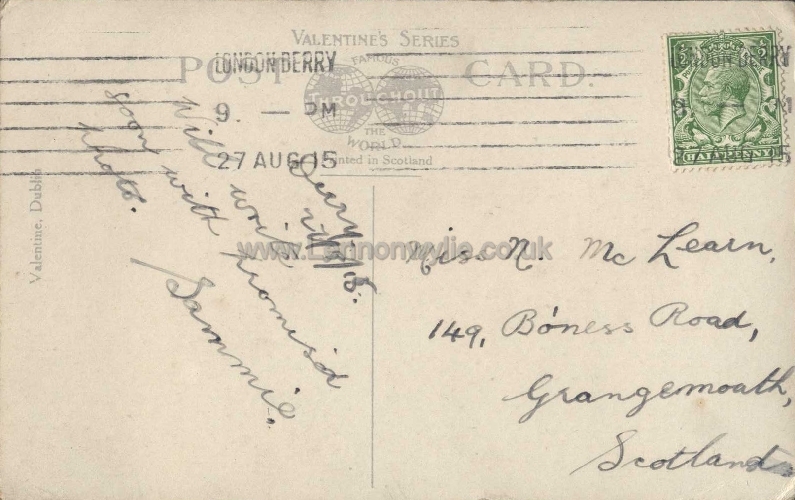 VALENTINE'S SERIES
POST CARD.
FAMOUS
THROUGHOUT
THE
WORLD
Printed in Scotland
LONDONDERRY
9. — PM
27 AUG 15
LONDONDERRY
27 AUG 15
HALFPENNY
Valentine, Dublin
Derry
27/8/15.
Will write
soon with promised
photo.
Sammie.
Miss N. Mc Learn,
149, Bo'ness Road,
Grangemouth,
Scotland
www.Lennonwylie.co.uk